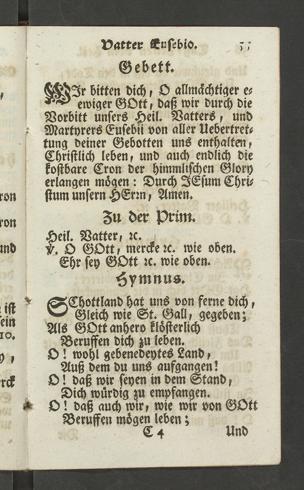 Vatter Eusebio. 55
Gebett.
WIr bitten dich, O allmächtiger e-
ewiger GOtt, daß wir durch die
Vorbitt unsers Heil. Vatters, und
Martyrers Eusebii von aller Uebertret-
tung deiner Gebotten uns enthalten,
Christlich leben, und auch endlich die
kostbare Cron der himmlischen Glory
erlangen mögen: Durch JEsum Chri-
stum unsern HErrn, Amen.
Zu der Prim.
Heil. Vatter, ꝛc.
℣. O GOtt, mercke ꝛc. wie oben.
Ehr sey GOtt ꝛc. wie oben.
Hymnus.
SChottland hat uns von ferne dich,
Gleich wie St. Gall, gegeben;
Als GOtt anhero klösterlich
Beruffen dich zu leben.
O! wohl gebenedeytes Land,
Auß dem du uns aufgangen!
O! daß wir seyen in dem Stand,
Dich würdig zu empfangen.
O! daß auch wir, wie wir von GOtt
Beruffen mögen leben;
C 4 Und
,
ron
ron
und
ist
sein
10.
y,
rck